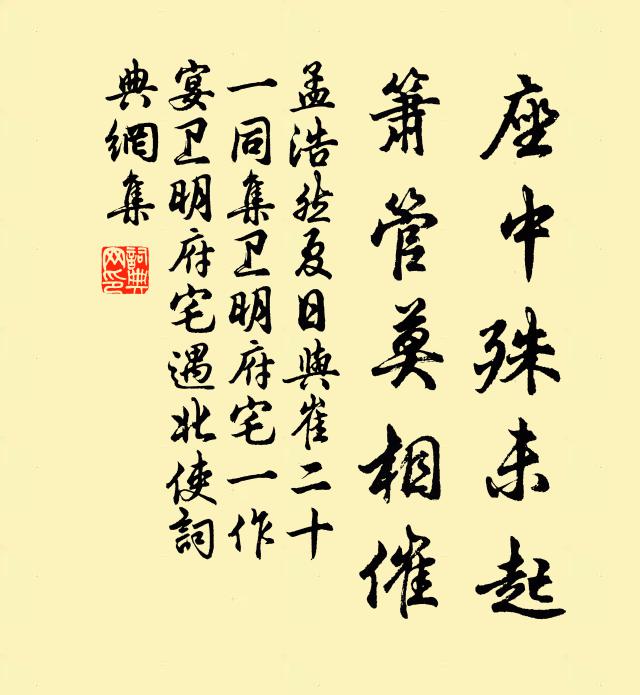 座中殊未起
箫管莫相催
孟浩然夏日與崔二十
一同集卫明府宅一作
宴卫明府宅遇北使詞
典網集
詞典網印